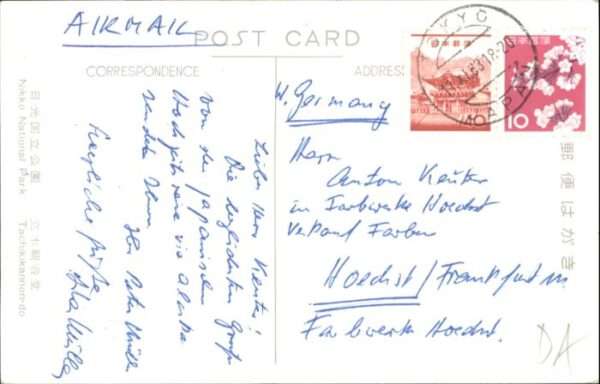 AIRMAIL
POST CARD
CORRESPONDENCE
ADDRESS
W. Germany
Lieber Herr Keuter!
Die herzlichsten Grüße
von der japanischen
Hochzeitsreise via Alaska
sendet Ihnen
Ihr Peter Müller
Herzliche Grüße
Müller
Herrn
Anton Keuter
in Farbwerke Hoechst
Verkauf Farben
Hoechst/Frankfurt M
Farbwerke Hoechst.
日本郵便
10
KYO
63.18-20
JAPAN
郵便はがき
日光国立公園 立木観音堂
Nikko National Park Tachikikannondo
DA